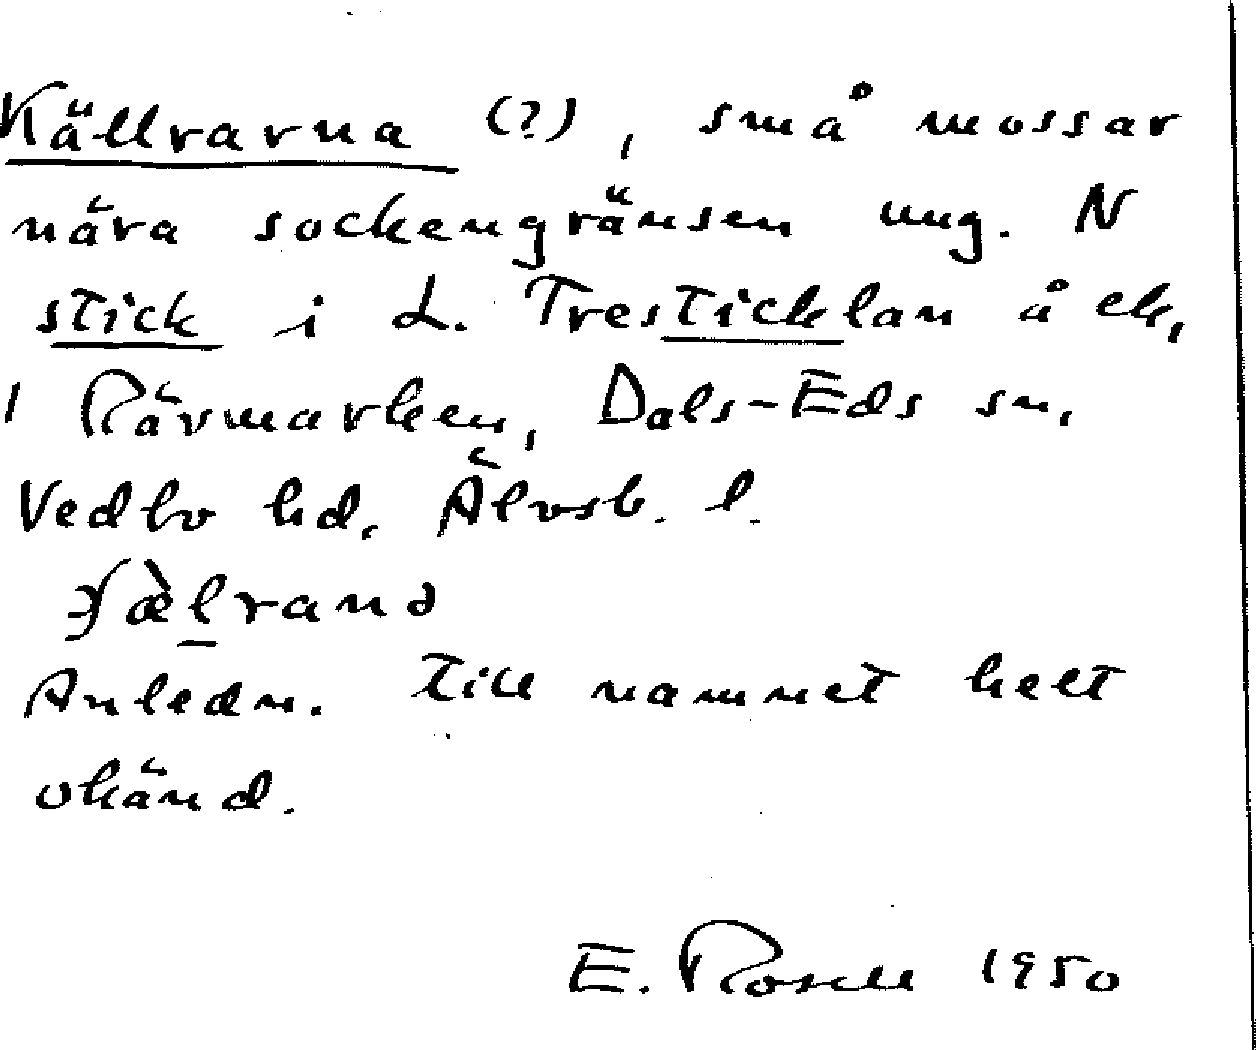 Källrarna (?), små mossar
nära sockengränsen ung. N
stick i L. Tresticklan å ek,
1 Rävmarken, Dals-Eds sn,
Vedbo hd, Älvsb. l.
Anledn. till namnet helt
okänd.
E. Rosell 1950